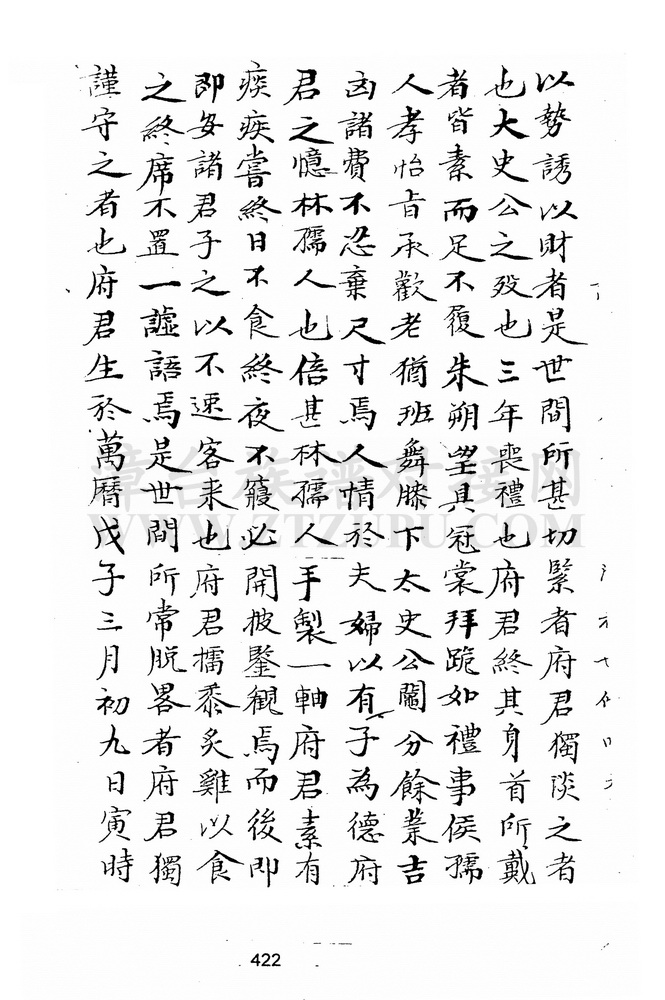 以勢誘以財者是世間所甚切緊者府君獨淡之者
也大史公之歿也三年喪禮也府君終其身首所戴
者皆素而足不履朱朔望具冠裳拜跪如禮事侯孺
人孝怡旨承歡老猶班舞膝下太史公鬮分餘業吉
凶諸費不忍棄尺寸焉人情於夫婦以有子為德府
君之憶林孺人也倍甚林孺人手製一軸府君素有
痰疾嘗終日不食終夜不寢必開披鑒觀焉而後即
即安諸君子之以不速客来也府君擂黍炙雞以食
之終席不置一謔語焉是世間所常脫畧者府君獨
謹守之者也府君生於萬曆戊子三月初九日寅時
漳台族譜对接网
WWW.ZTZUPU.COM
422